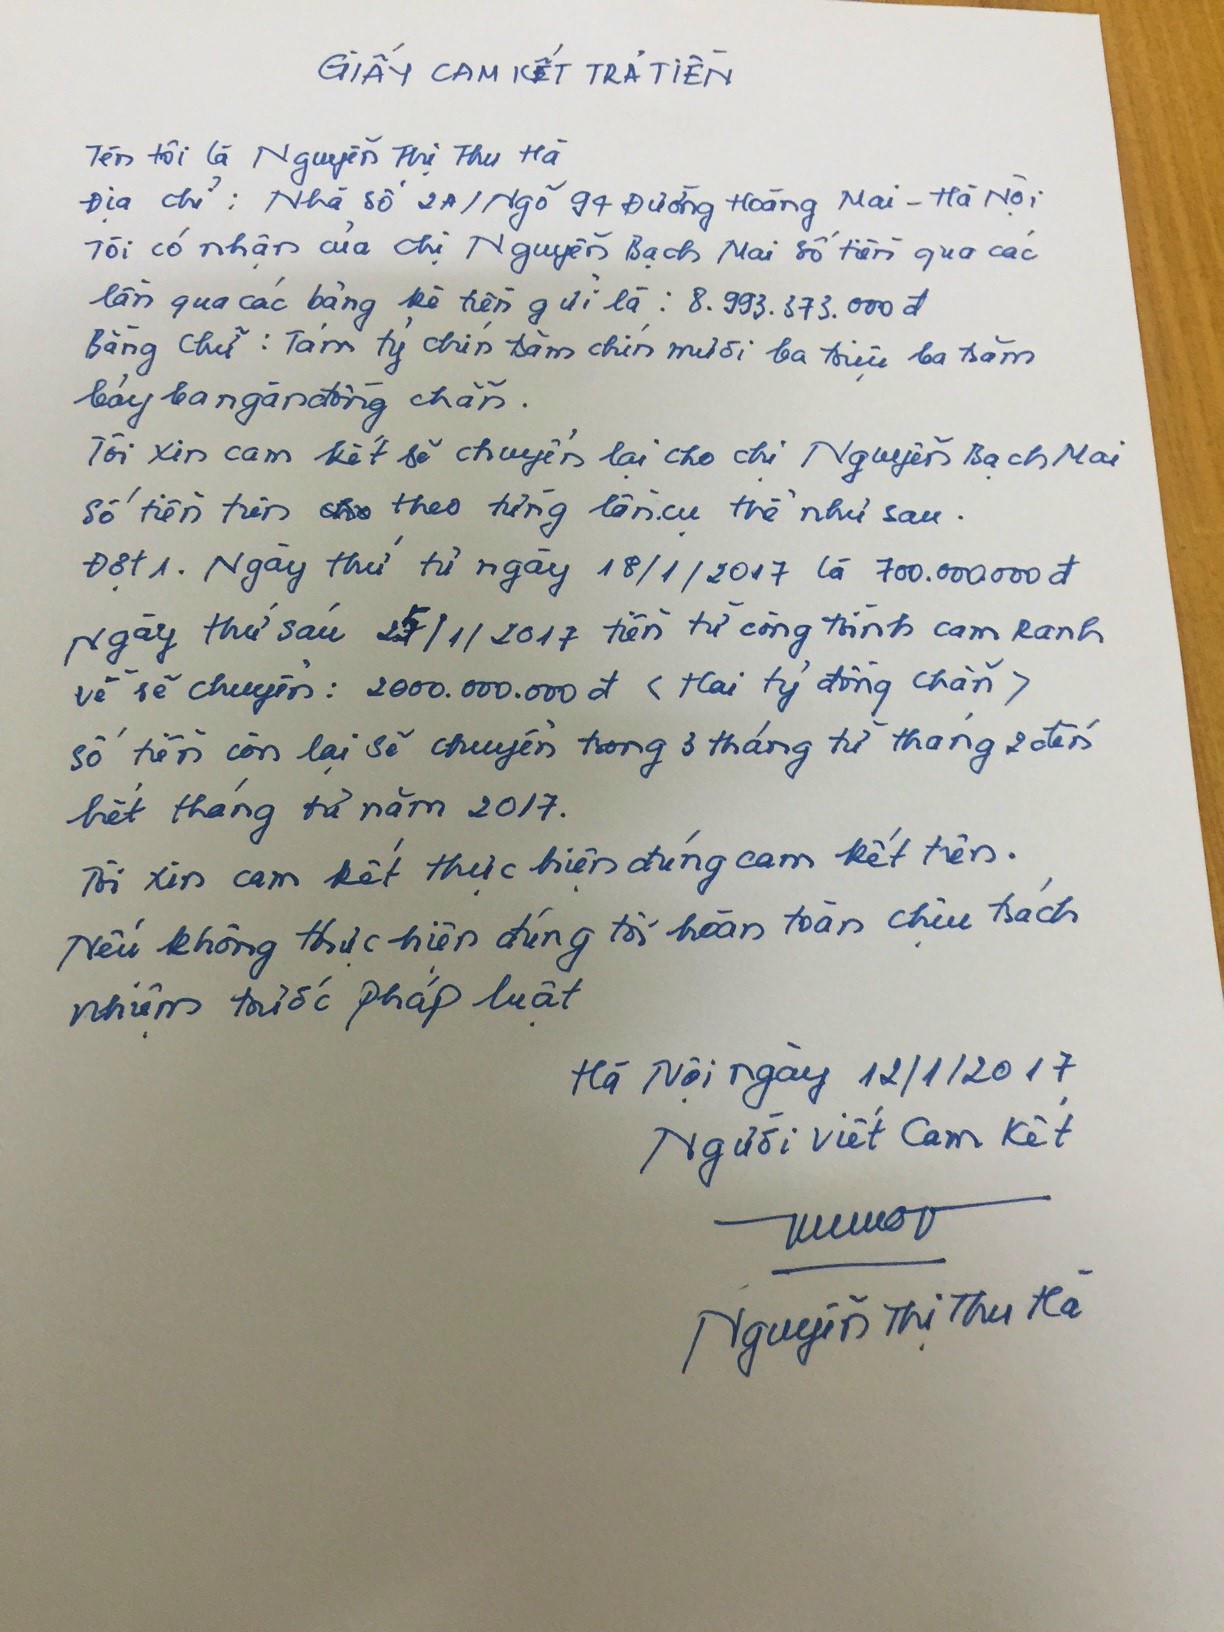 GIẤY CAM KẾT TRẢ TIỀN
Tên tôi là Nguyễn Thị Thu Hà
Địa chỉ: Nhà số 2A/Ngõ 94 Đường Hoàng Mai - Hà Nội
Tôi có nhận của chị Nguyễn Bạch Mai số tiền qua các
lần qua các bảng kê tiền gửi là: 8.993.373.000 đ
Bằng chữ: Tám tỷ chín trăm chín mươi ba triệu ba trăm
bảy ba ngàn đồng chẵn.
Tôi xin cam kết sẽ chuyển lại cho chị Nguyễn Bạch Mai
số tiền trên theo từng lần cụ thể như sau.
Đợt 1. Ngày thứ tư ngày 18/1/2017 là 700.000.000 đ
Ngày thứ sáu /1/2017 tiền từ công trình cam Ranh
về sẽ chuyển: 2000.000.000 đ < Hai tỷ đồng chẵn >
số tiền còn lại sẽ chuyển trong 3 tháng từ tháng 2 đến
hết tháng tư năm 2017.
Tôi xin cam kết thực hiện đúng cam kết trên.
Nếu không thực hiện đúng tôi hoàn toàn chịu trách
nhiệm trước pháp luật
Hà Nội ngày 12/1/2017
Người viết Cam kết
Nguyễn Thị Thu Hà